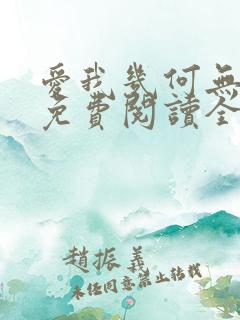 愛我幾何無
免費閱讀全
趙振義
未经同意禁止转载